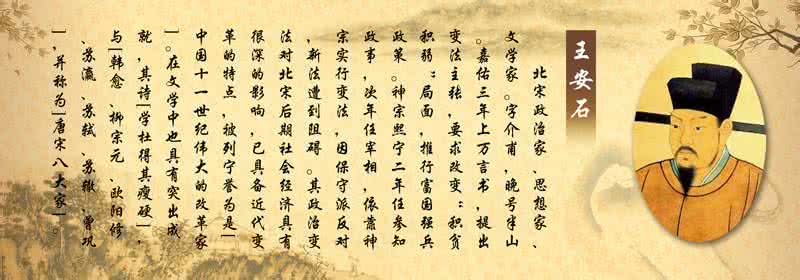 王安石
北宋政治家、思想家、
文学家。字介甫，晚号半山
。嘉佑三年上万言书，提出
变法主张，要求改变“积贫
积弱”局面，推行富国强兵
政策。神宗熙宁二年任参知
政事，次年任宰相，依靠神
宗实行变法，因保守派反对
，新法遭到阻碍。其政治变
法对北宋后期社会经济具有
很深的影响，已具备近代变
革的特点，被列宁誉为是“
中国十一世纪伟大的改革家
”。在文学中也具有突出成
就，其诗“学杜得其瘦硬”，
与“韩愈、柳宗元、欧阳修
、苏瀛、苏轼、苏辙、曾巩
”，并称为“唐宋八大家”。